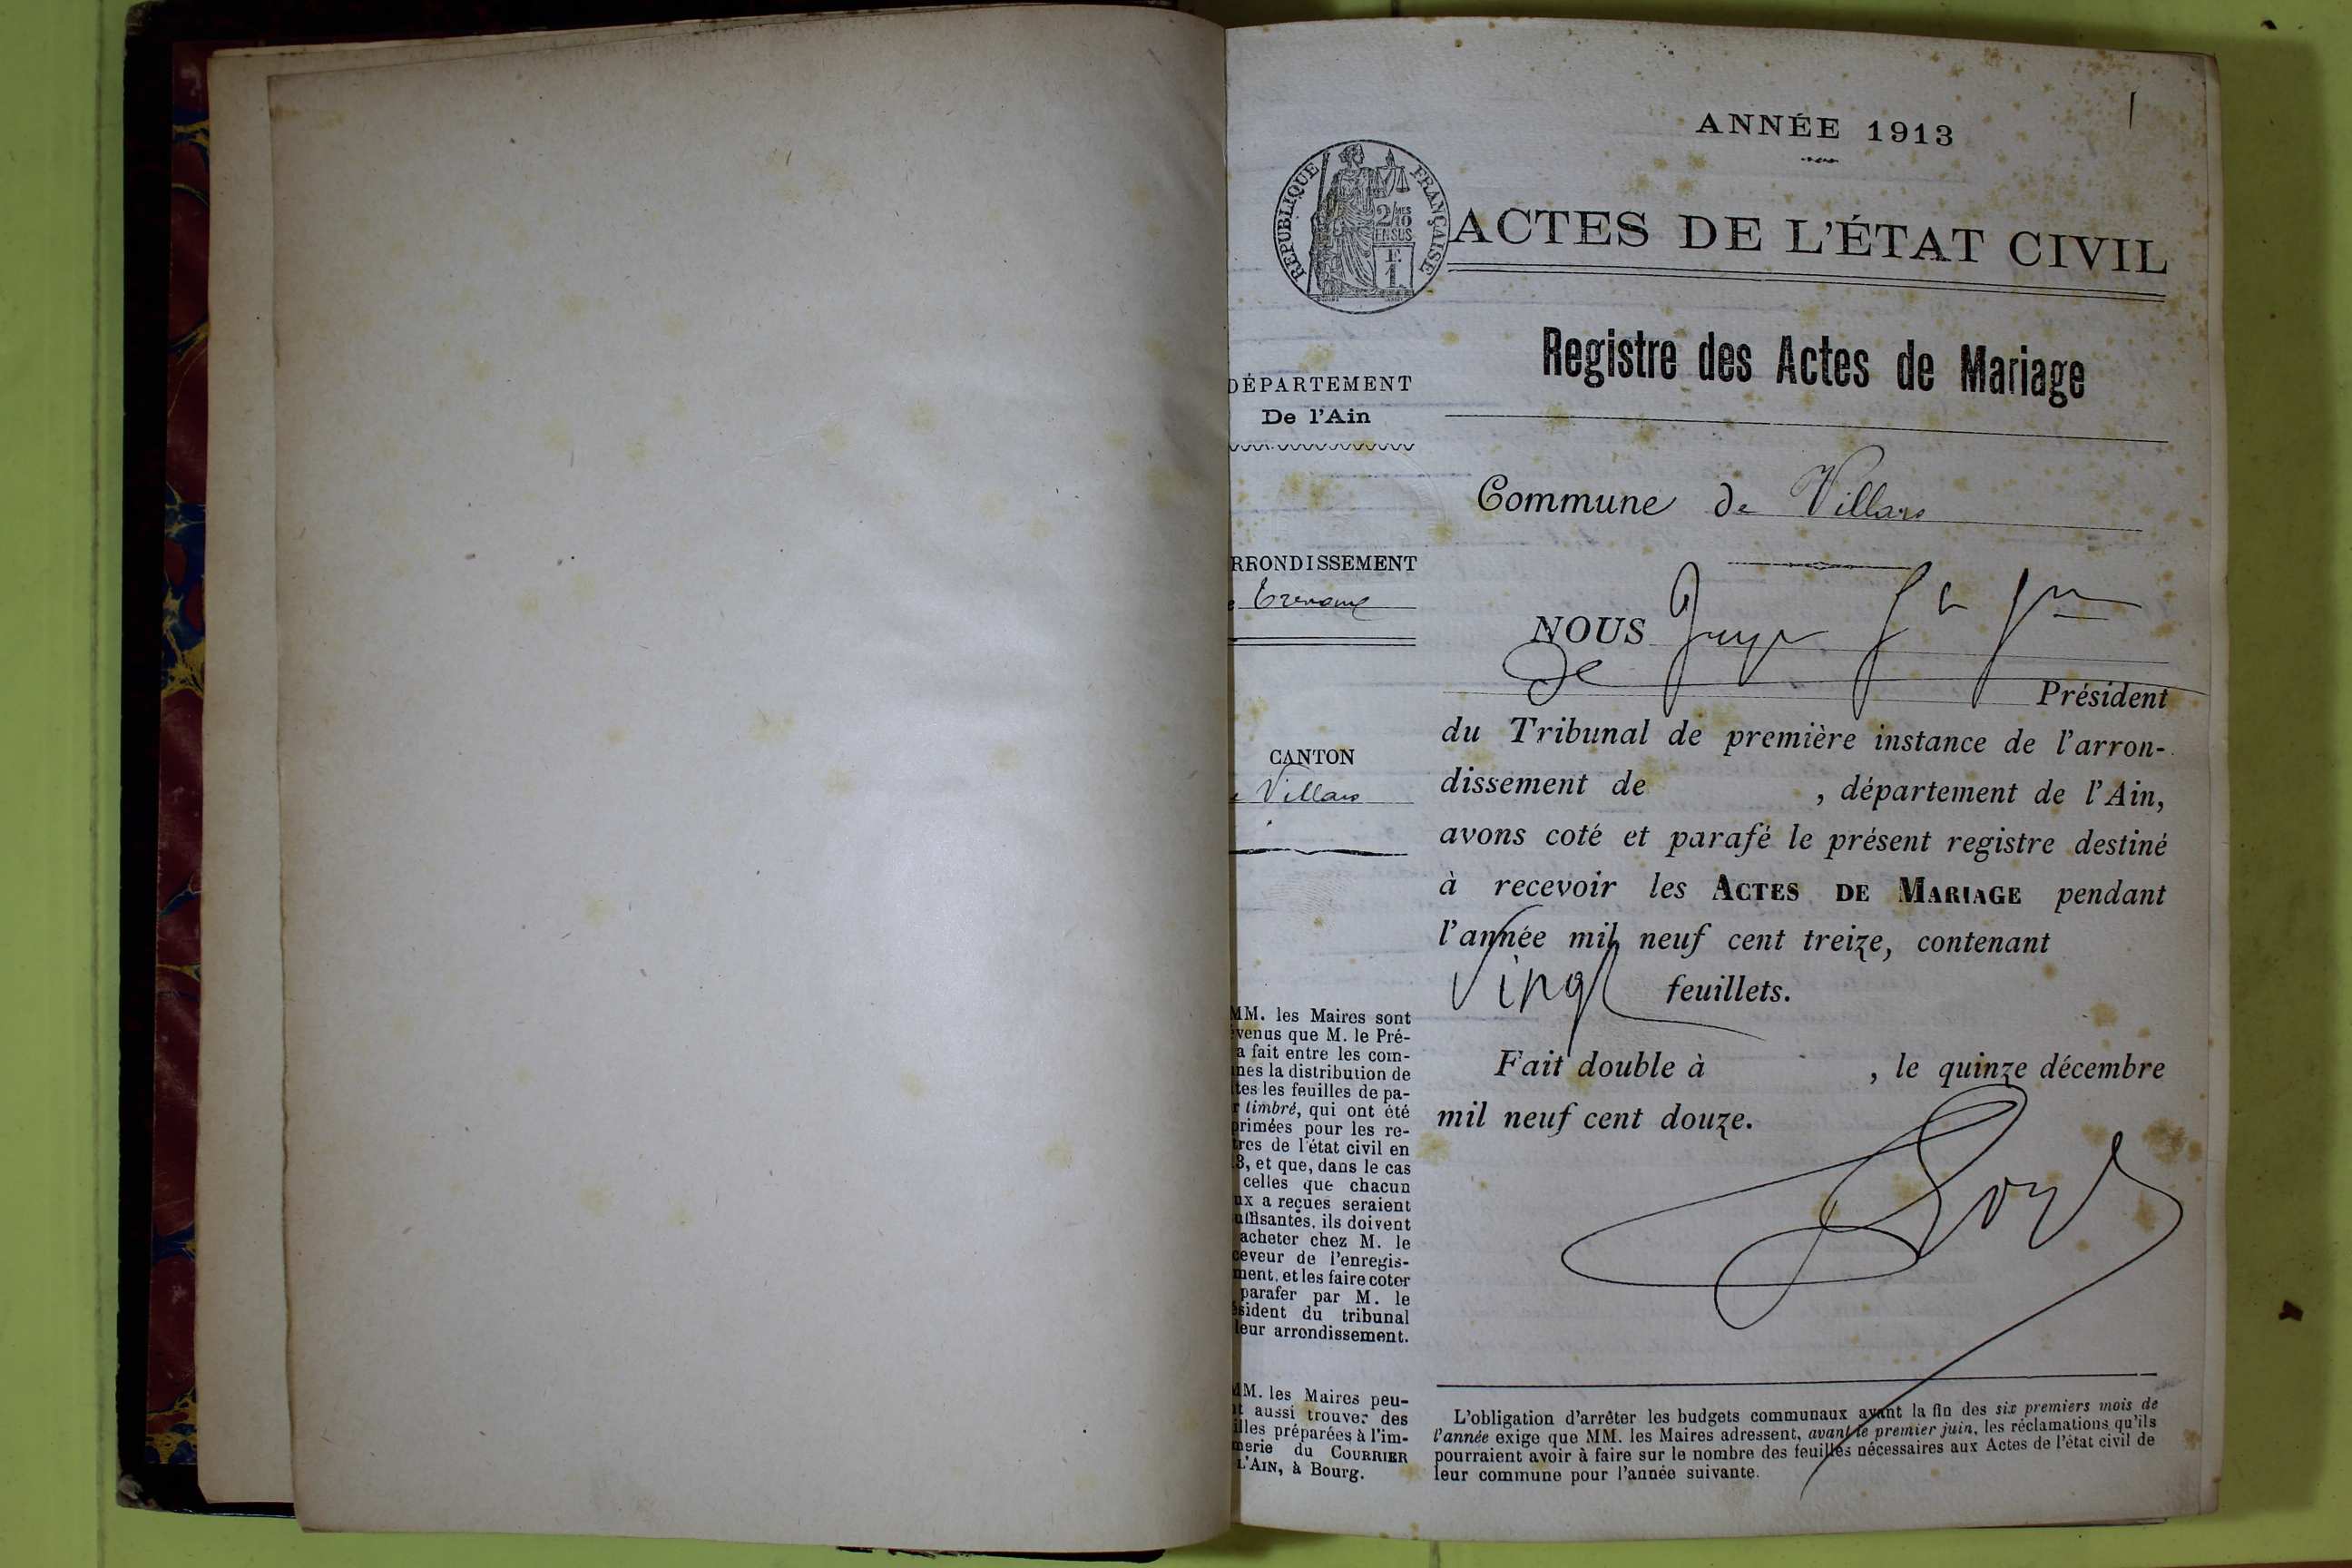 ANNÉE 1913
1
RÉPUBLIQUE FRANÇAISE
2/10 MES
EN SUS
F.
1
ACTES DE L'ÉTAT CIVIL
Registre des Actes de Mariage
DÉPARTEMENT
De l'Ain
Commune de Villars
RRONDISSEMENT
e Trevoux
CANTON
e Villars
NOUS
de
Président
du Tribunal de première instance de l'arron-
dissement de , département de l'Ain,
avons coté et parafé le présent registre destiné
à recevoir les ACTES DE MARIAGE pendant
l'année mil neuf cent treize, contenant
Vingt feuillets.
Fait double à , le quinze décembre
mil neuf cent douze.
MM. les Maires sont
évenus que M. le Pré-
a fait entre les com-
nes la distribution de
tes les feuilles de pa-
r timbré, qui ont été
primées pour les re-
tres de l'état civil en
3, et que, dans le cas
celles que chacun
ux a reçues seraient
uffisantes, ils doivent
acheter chez M. le
ceveur de l'enregis-
ment, et les faire coter
parafer par M. le
ésident du tribunal
leur arrondissement.
MM. les Maires peu-
nt aussi trouver des
illes préparées à l'im-
merie du COURRIER
L'AIN, à Bourg.
L'obligation d'arrêter les budgets communaux avant la fin des six premiers mois de
l'année exige que MM. les Maires adressent, avant le premier juin, les réclamations qu'ils
pourraient avoir à faire sur le nombre des feuilles nécessaires aux Actes de l'état civil de
leur commune pour l'année suivante.